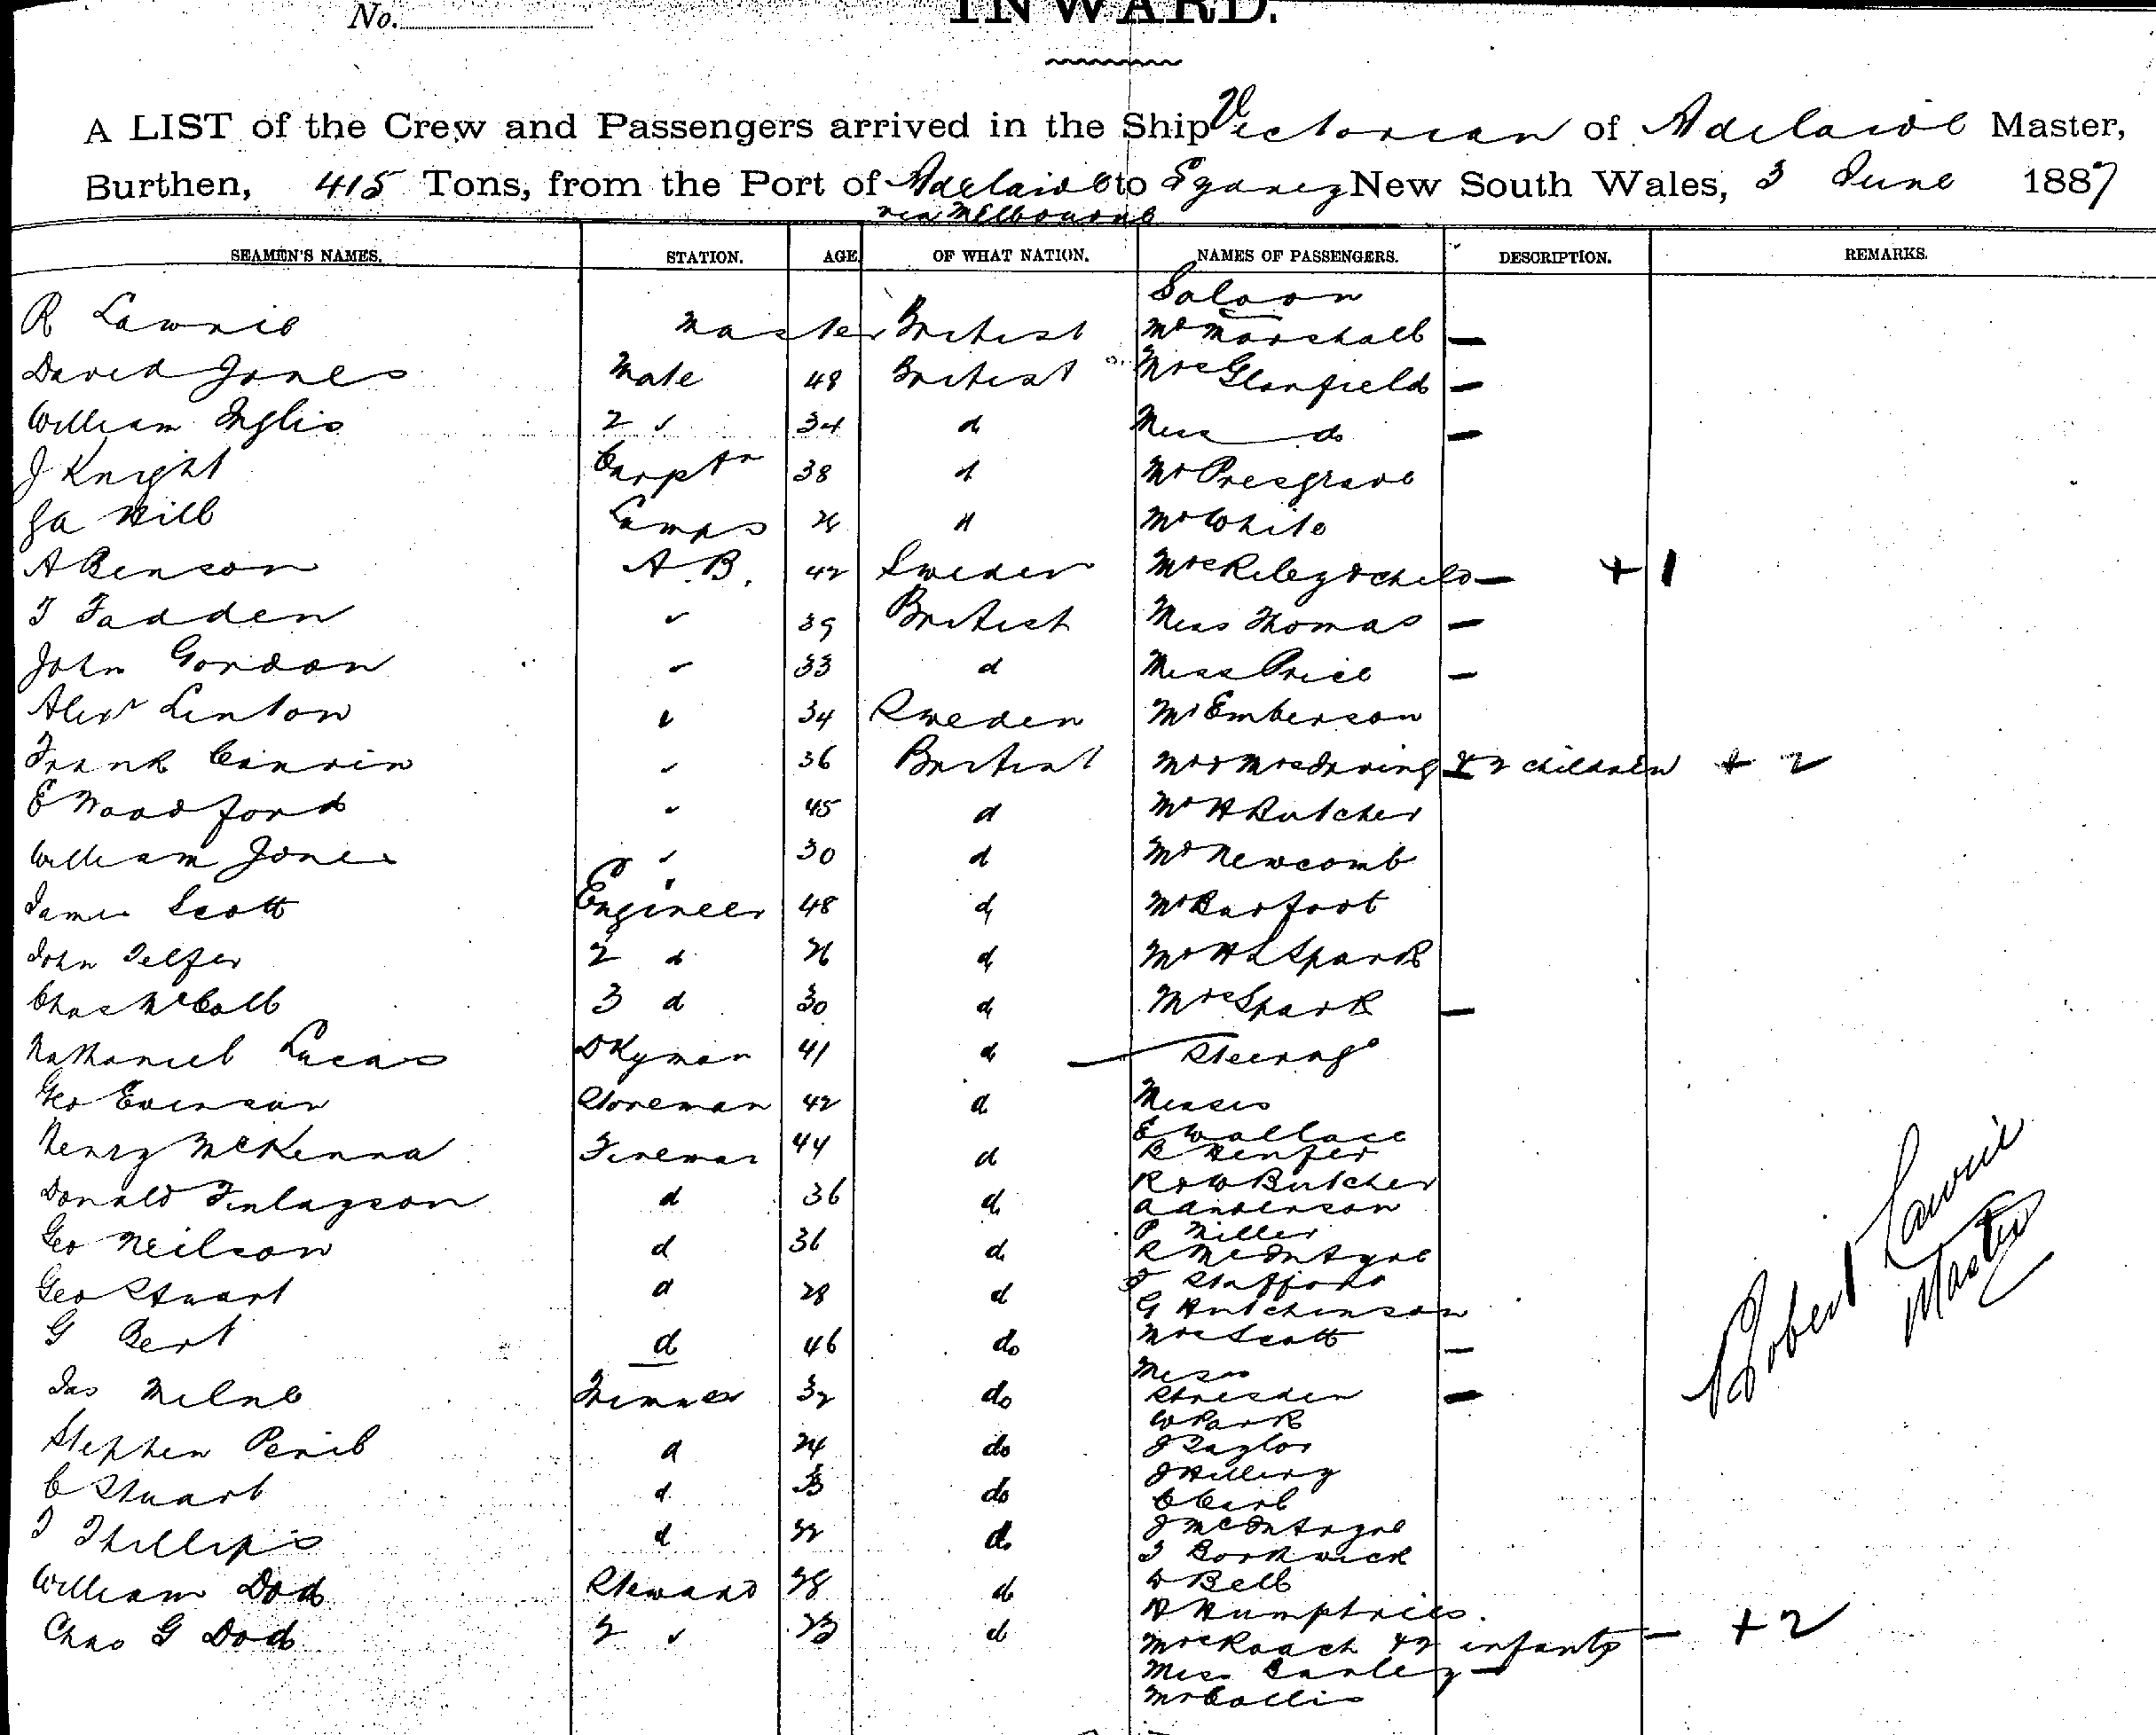 No.
INWARD.
A LIST of the Crew and Passengers arrived in the Ship Victorian of Adelaide Master,
Burthen, 415 Tons, from the Port of Adelaide to Sydney New South Wales, 3 June 1887
via Melbourne
SEAMEN'S NAMES. STATION. AGE OF WHAT NATION. NAMES OF PASSENGERS. DESCRIPTION. REMARKS.
Saloon
R Lawrie Master British Mr Marshall —
David Jones Mate 48 British Mrs Glanfield —
William Inglis 2 " 34 d Miss do —
J Knight Carptr 38 d Mr Presgrave
Ja Hill Lamps 26 d Mr White
A Benson A.B. 42 Sweden Mrs Riley & child — + 1
T Fadden " 39 British Miss Thomas —
John Gordon " 33 d Miss Price —
Alexr Linton " 34 Sweden Mr Emberson
Frank " 36 British Mr & Mrs Irving & 2 children + 2
E Woodford " 45 d Mr H Butcher
William Jones " 30 d Mr Newcomb
James Scott Engineer 48 d Mr Barfoot
John Telfer 2 d 26 d Mr H L Spark
Chas McCall 3 d 30 d Mrs Spark —
Nathaniel Lucas Dkyman 41 d Steerage
Geo Evenson Storeman 42 d Messrs
E Wallace
Henry McKenna Fireman 44 d R Henfer
R & W Butcher
Donald Finlayson d 36 d A Anderson
P Miller
Geo Neilson d 36 d R McIntyre
T Stafford
Geo Stuart d 28 d G Hutchinson
G Bert d 46 do Mrs Scott —
Miss
Jas Milne Trimmer 32 do —
W Park
Stephen Perib d 24 do J Taylor
J Hillery
C Stuart d 33 do C Carl
J McIntyre
T Phillips d 22 d. T Borthwick
William Dod Steward 28 d Bell
H Humphries.
Chas G Dod 2 " 23 d Mrs Roach & 2 infants — + 2
Miss —
Mr Collis
Robert Lawrie
Master